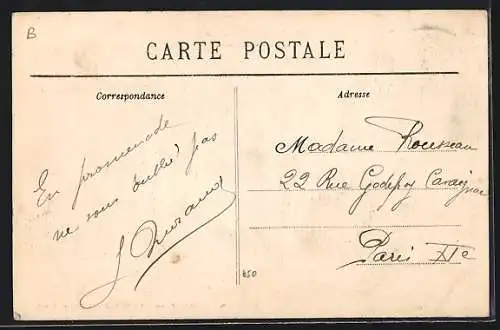 B
CARTE POSTALE
Correspondance
Adresse
En promenade
ne vous oublie pas
J Durand
Madame Rousseau
22 Rue Godefroy Cavaignac
Paris XIe
650